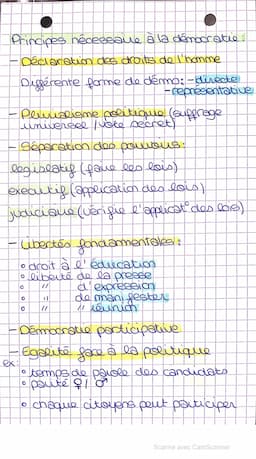 Principes nécessaire à la démocratie :
- Déclaration des droits de l'homme
Différente forme de démo : - directe
- représentative
- Pluralisme politique (suffrage
universel / vote secret)
- Séparation des pouvoirs :
législatif (faire les lois)
exécutif (application des lois)
judiciaire (vérifie l'applicat° des lois)
- Libertés fondamentales :
• droit à l'éducation
• liberté de la presse
• " d'expression
• " de manifester
• " réunion
- Démocratie participative
- Egalité face à la politique
ex : • temps de parole des candidats
• parité ♀/♂
• chaque citoyens peut participer
Scanné avec CamScanner